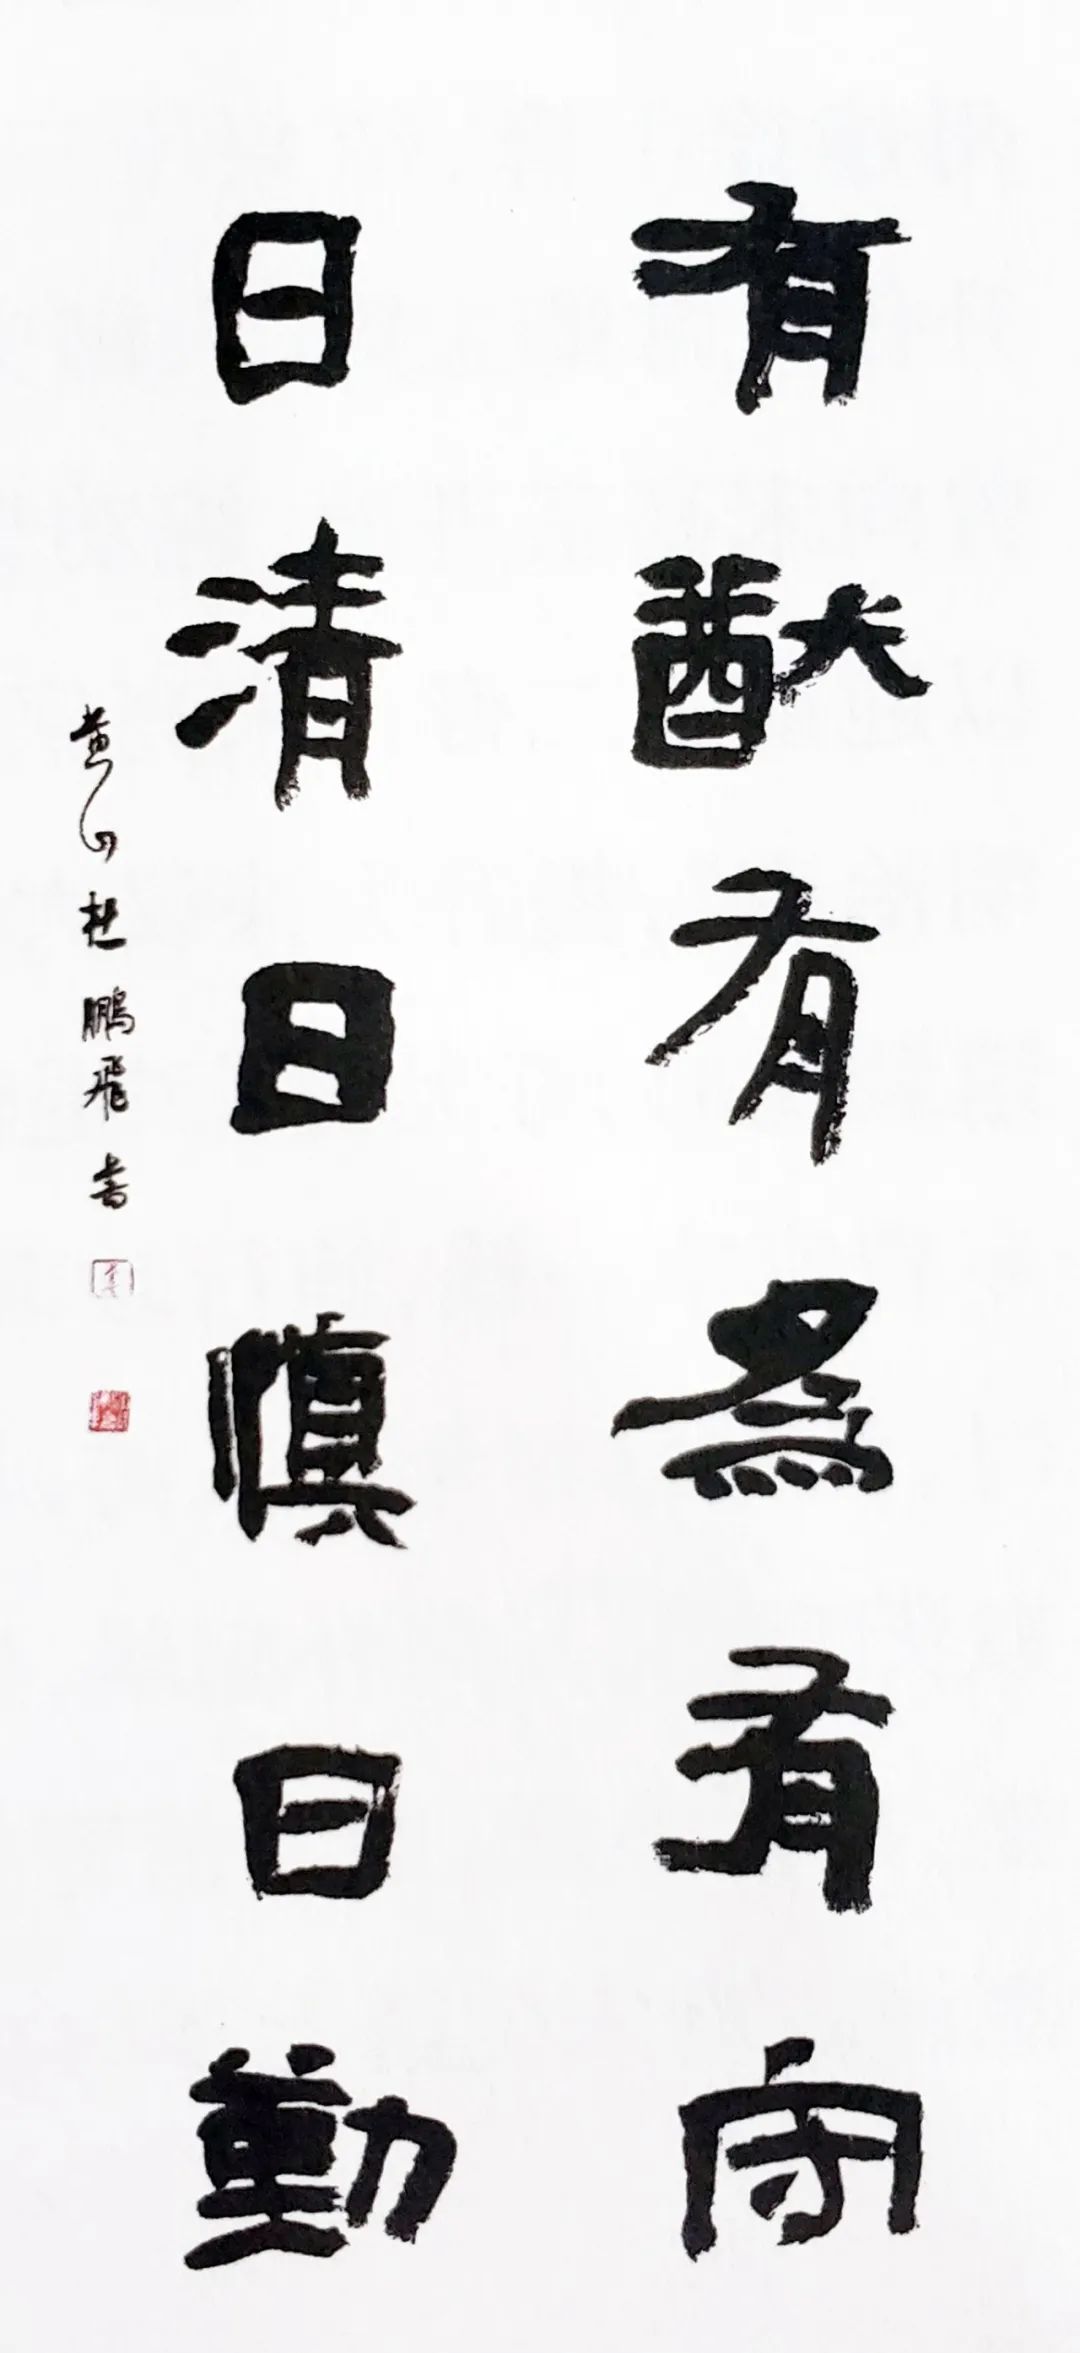 有猷有為有守
日清日慎日勤
黄山杜鵬飛書